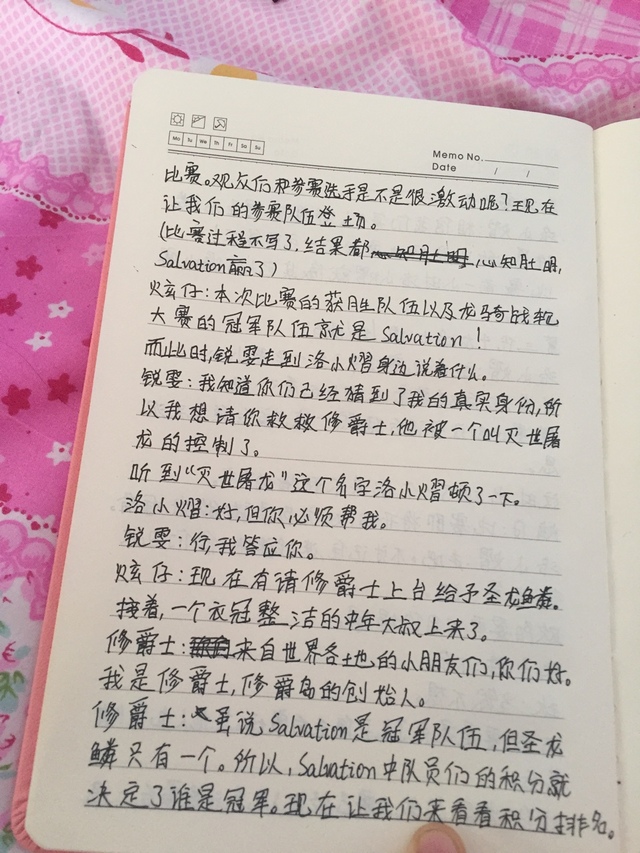 Mo Tu We Th Fr Sa Su
Memo No.
Date / /
比赛。观众们和参赛选手是不是很激动呢？现在
让我们的参赛队伍登场。
(比赛过程不写了，结果都心知肚明，
Salvation赢了)
炫仔：本次比赛的获胜队伍以及龙骑战轨
大赛的冠军队伍就是Salvation！
而此时，锐雯走到洛小熠身边说着什么。
锐雯：我知道你们已经猜到了我的真实身份，所
以我想请你救救修爵士，他被一个叫灭世屠
龙的控制了。
听到“灭世屠龙”这个名字洛小熠顿了一下。
洛小熠：好，但你必须帮我。
锐雯：行，我答应你。
炫仔：现在有请修爵士上台给予圣龙鳞。
接着，一个衣冠整洁的中年大叔上来了。
修爵士：来自世界各土也的小朋友们，你们好。
我是修爵士，修爵岛的创始人。
修爵士：虽说Salvation是冠军队伍，但圣龙
鳞只有一个。所以，Salvation中队员们的积分就
决定了谁是冠军。现在让我们来看看积分排名。